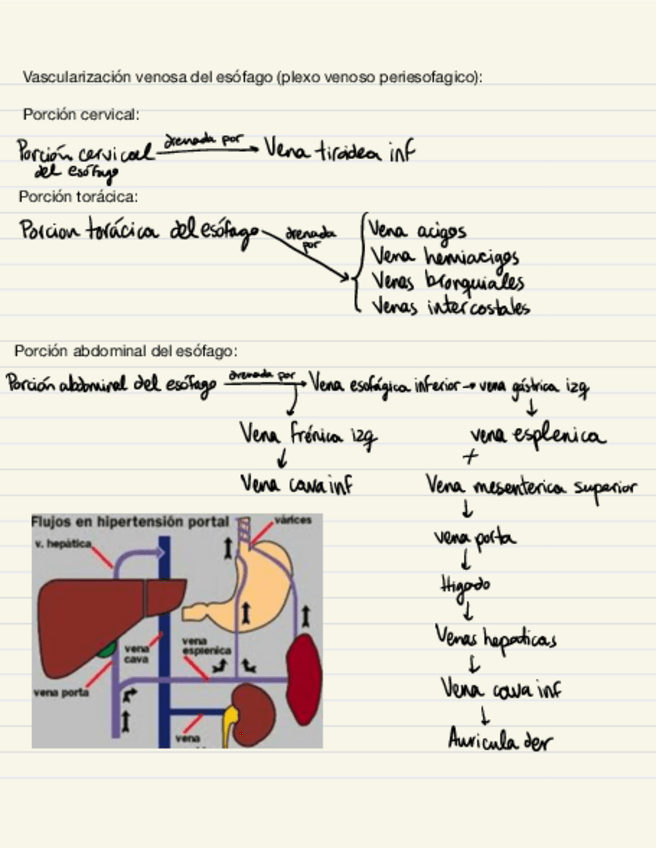 Vascularización venosa del esófago (plexo venoso periesofagico):
Porción cervical:
Porción cervical drenada por → Vena tiroidea inf
del esófago
Porción torácica:
Porcion torácica del esófago drenada por → { Vena acigos
Vena hemiacigos
Venas bronquiales
Venas intercostales
Porción abdominal del esófago:
Porción abdominal del esófago drenada por → Vena esofágica inferior → vena gástrica izq
↓ ↓
Vena frénica izq vena esplenica
↓ +
Vena cava inf Vena mesenterica superior
↓
vena porta
↓
Higado
↓
Venas hepaticas
↓
Vena cava inf
↓
Auricula der
Flujos en hipertensión portal
várices
v. hepática
vena cava
vena esplenica
vena porta
vena